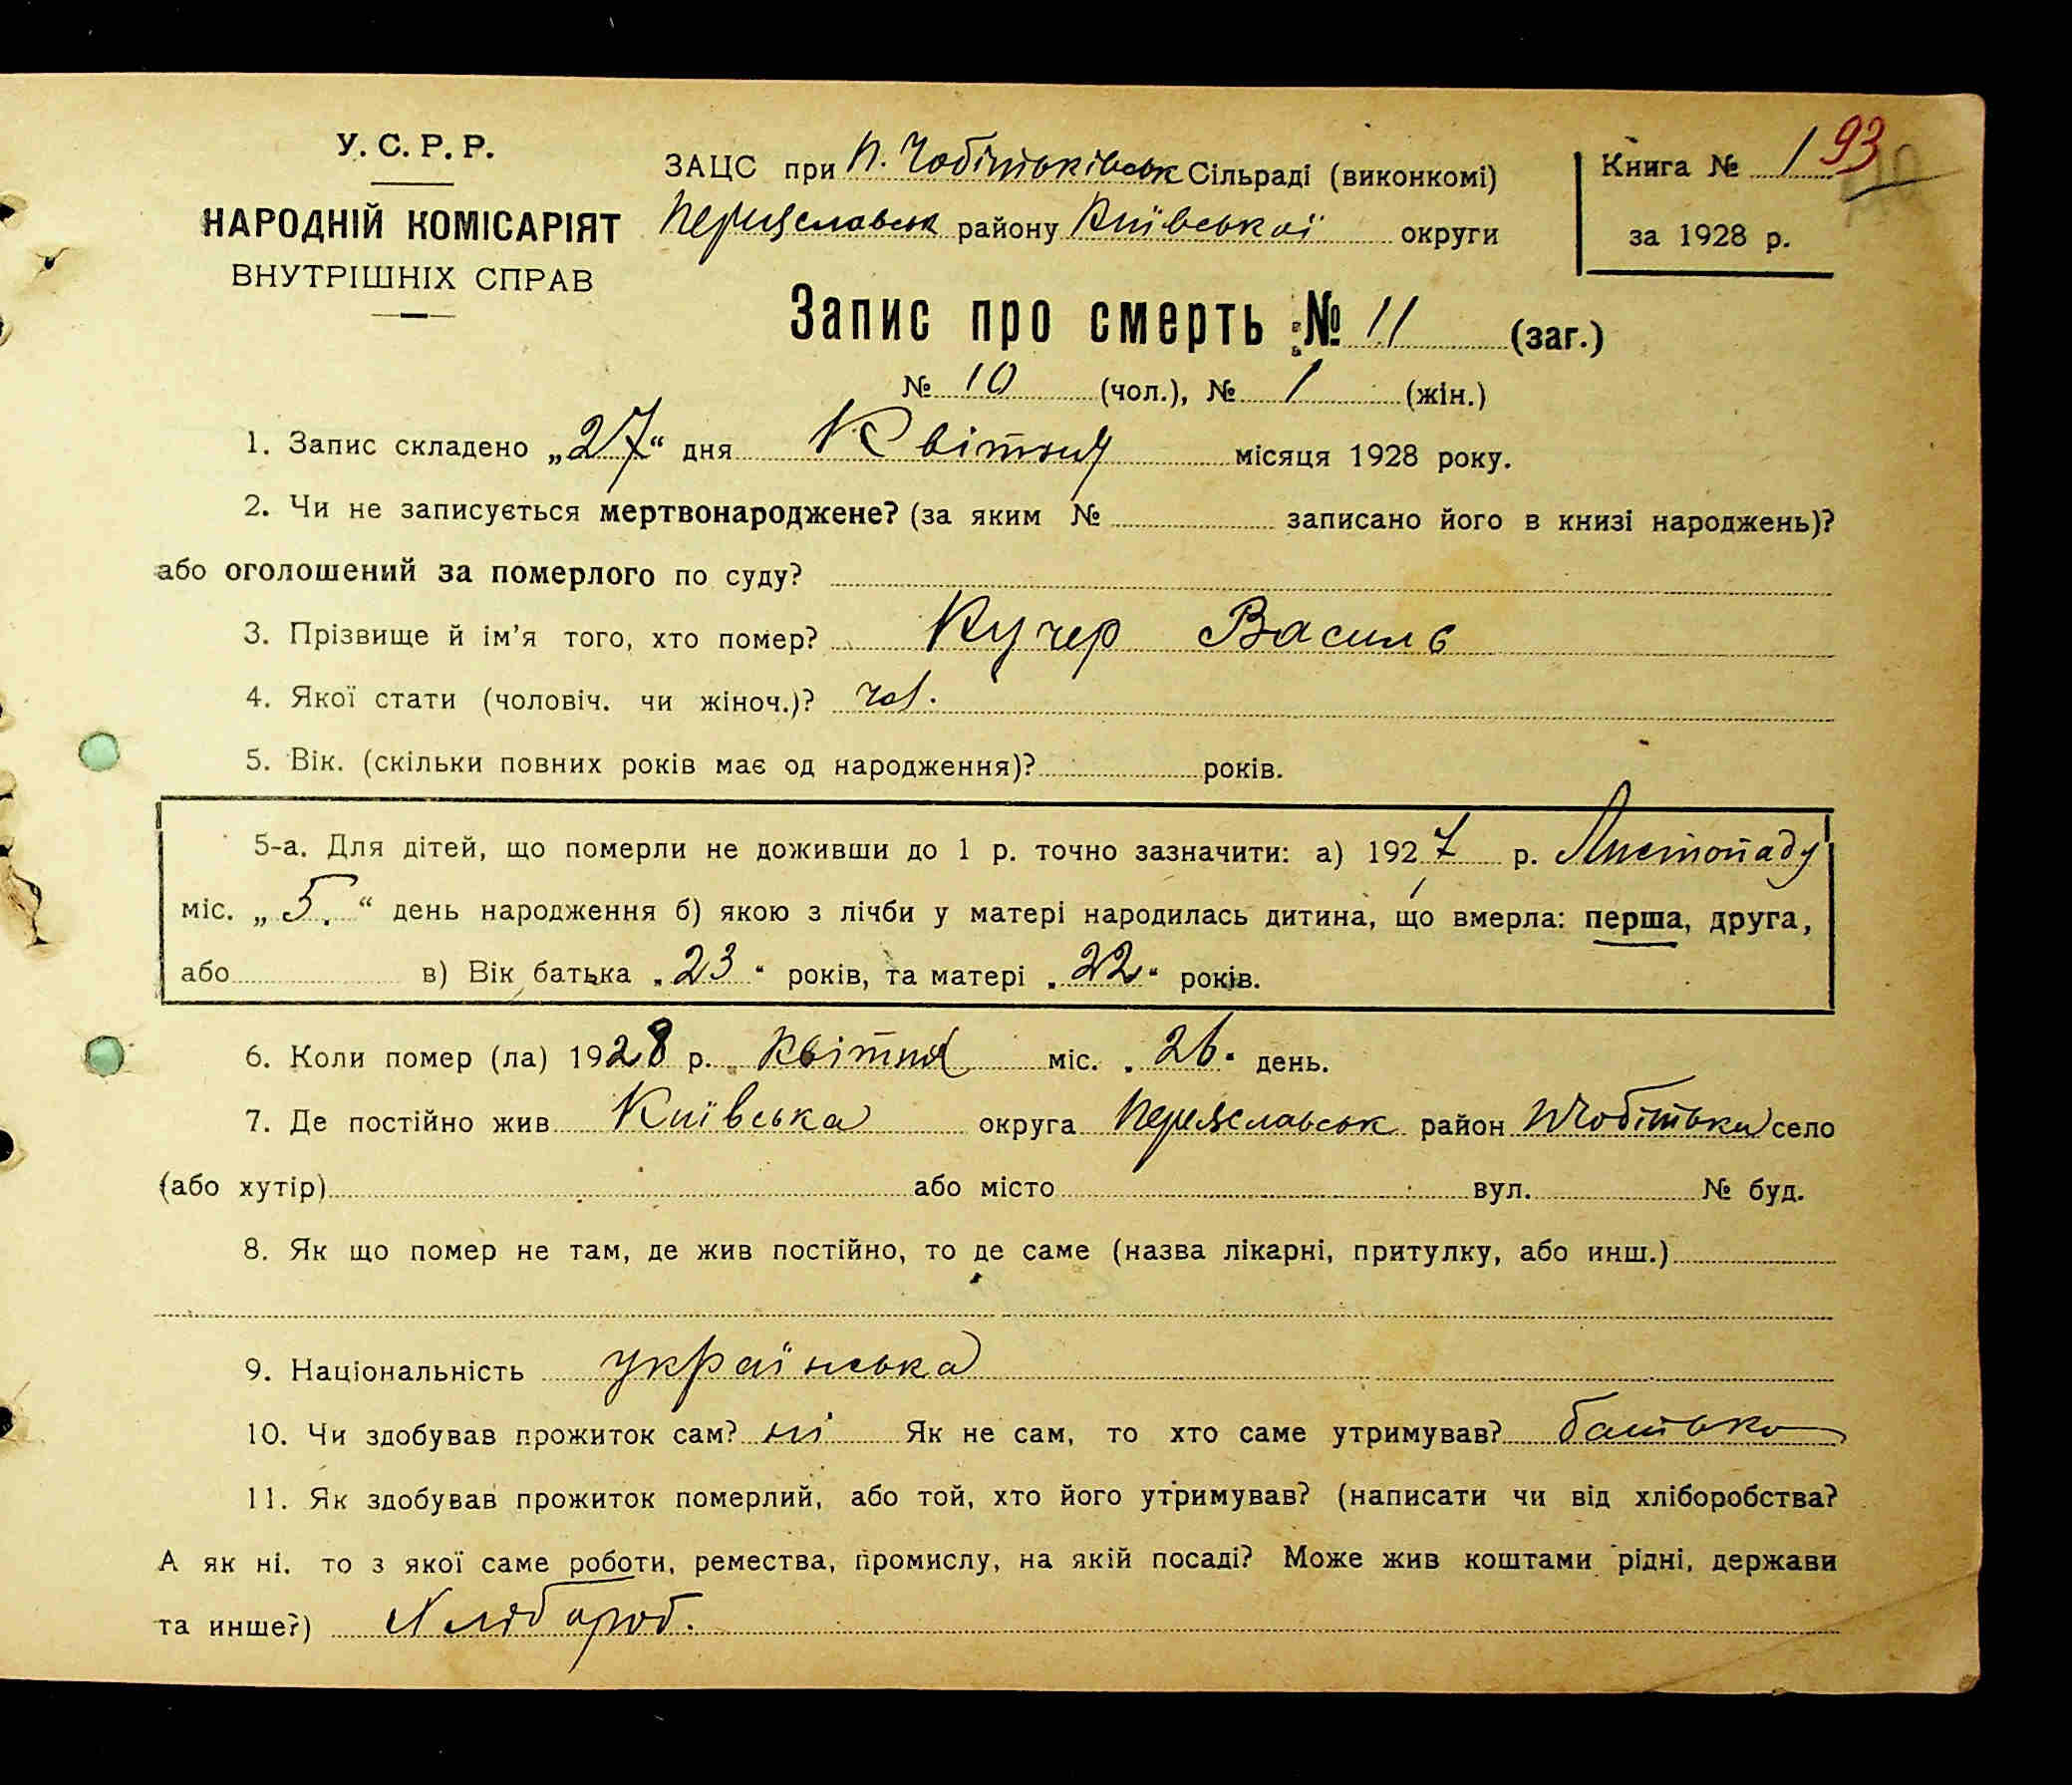 У. С. Р. Р.
НАРОДНІЙ КОМІСАРІЯТ
ВНУТРІШНІХ СПРАВ
ЗАЦС при П. Чобітьківськ Сільраді (виконкомі)
Переяславськ району Київської округи
Книга № 1 93
за 1928 р.
Запис про смерть № 11 (заг.)
№ 10 (чол.), № 1 (жін.)
1. Запис складено „27“ дня Квітня місяця 1928 року.
2. Чи не записується мертвонароджене? (за яким № записано його в книзі народжень)?
або оголошений за померлого по суду?
3. Прізвище й ім’я того, хто помер? Кучер Василь
4. Якої стати (чоловіч. чи жіноч.)? чол.
5. Вік. (скільки повних років має од народження)? років.
5-а. Для дітей, що померли не доживши до 1 р. точно зазначити: а) 1927 р. Листопаду
міс. „5.“ день народження б) якою з лічби у матері народилась дитина, що вмерла: перша, друга,
або в) Вік батька „23“ років, та матері „22“ років.
6. Коли помер (ла) 1928 р. Квітня міс. „26“ день.
7. Де постійно жив Київська округа Переяславськ район Чобітьки село
(або хутір) або місто вул. № буд.
8. Як що помер не там, де жив постійно, то де саме (назва лікарні, притулку, або инш.)
9. Національність українська
10. Чи здобував прожиток сам? ні Як не сам, то хто саме утримував? батько
11. Як здобував прожиток померлий, або той, хто його утримував? (написати чи від хліборобства?
А як ні. то з якої саме роботи, ремества, промислу, на якій посаді? Може жив коштами рідні, держави
та инше?) Хлібороб.